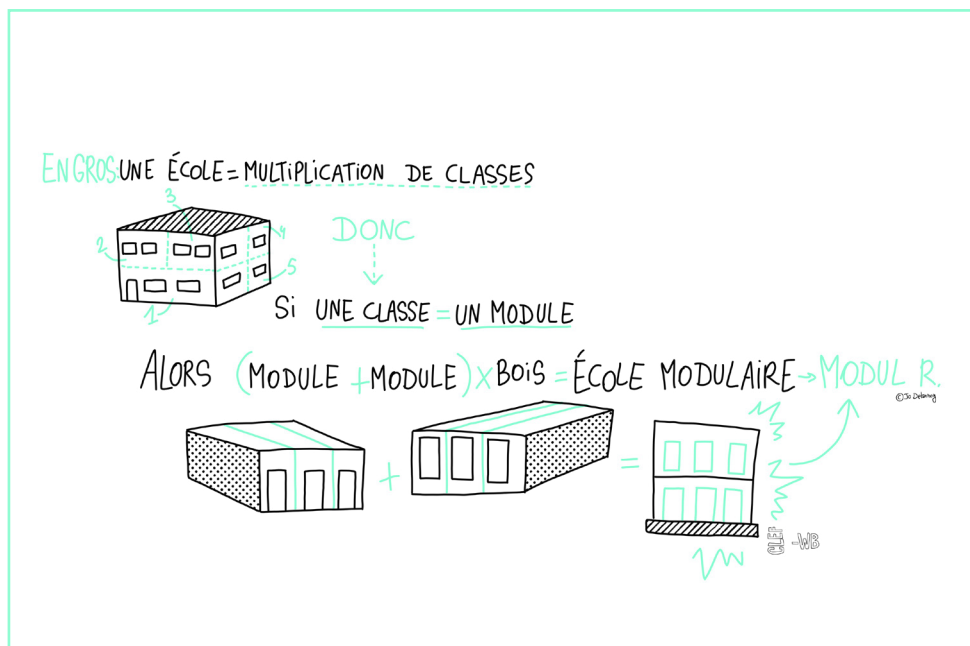 EN GROS: UNE ÉCOLE = MULTIPLICATION DE CLASSES
3
2
4
5
1
DONC
Si UNE CLASSE = UN MODULE
ALORS (MODULE + MODULE) X BOIS = ÉCOLE MODULAIRE → MODUL R.
©Jo Delannoy
+
=
CLEF -WB